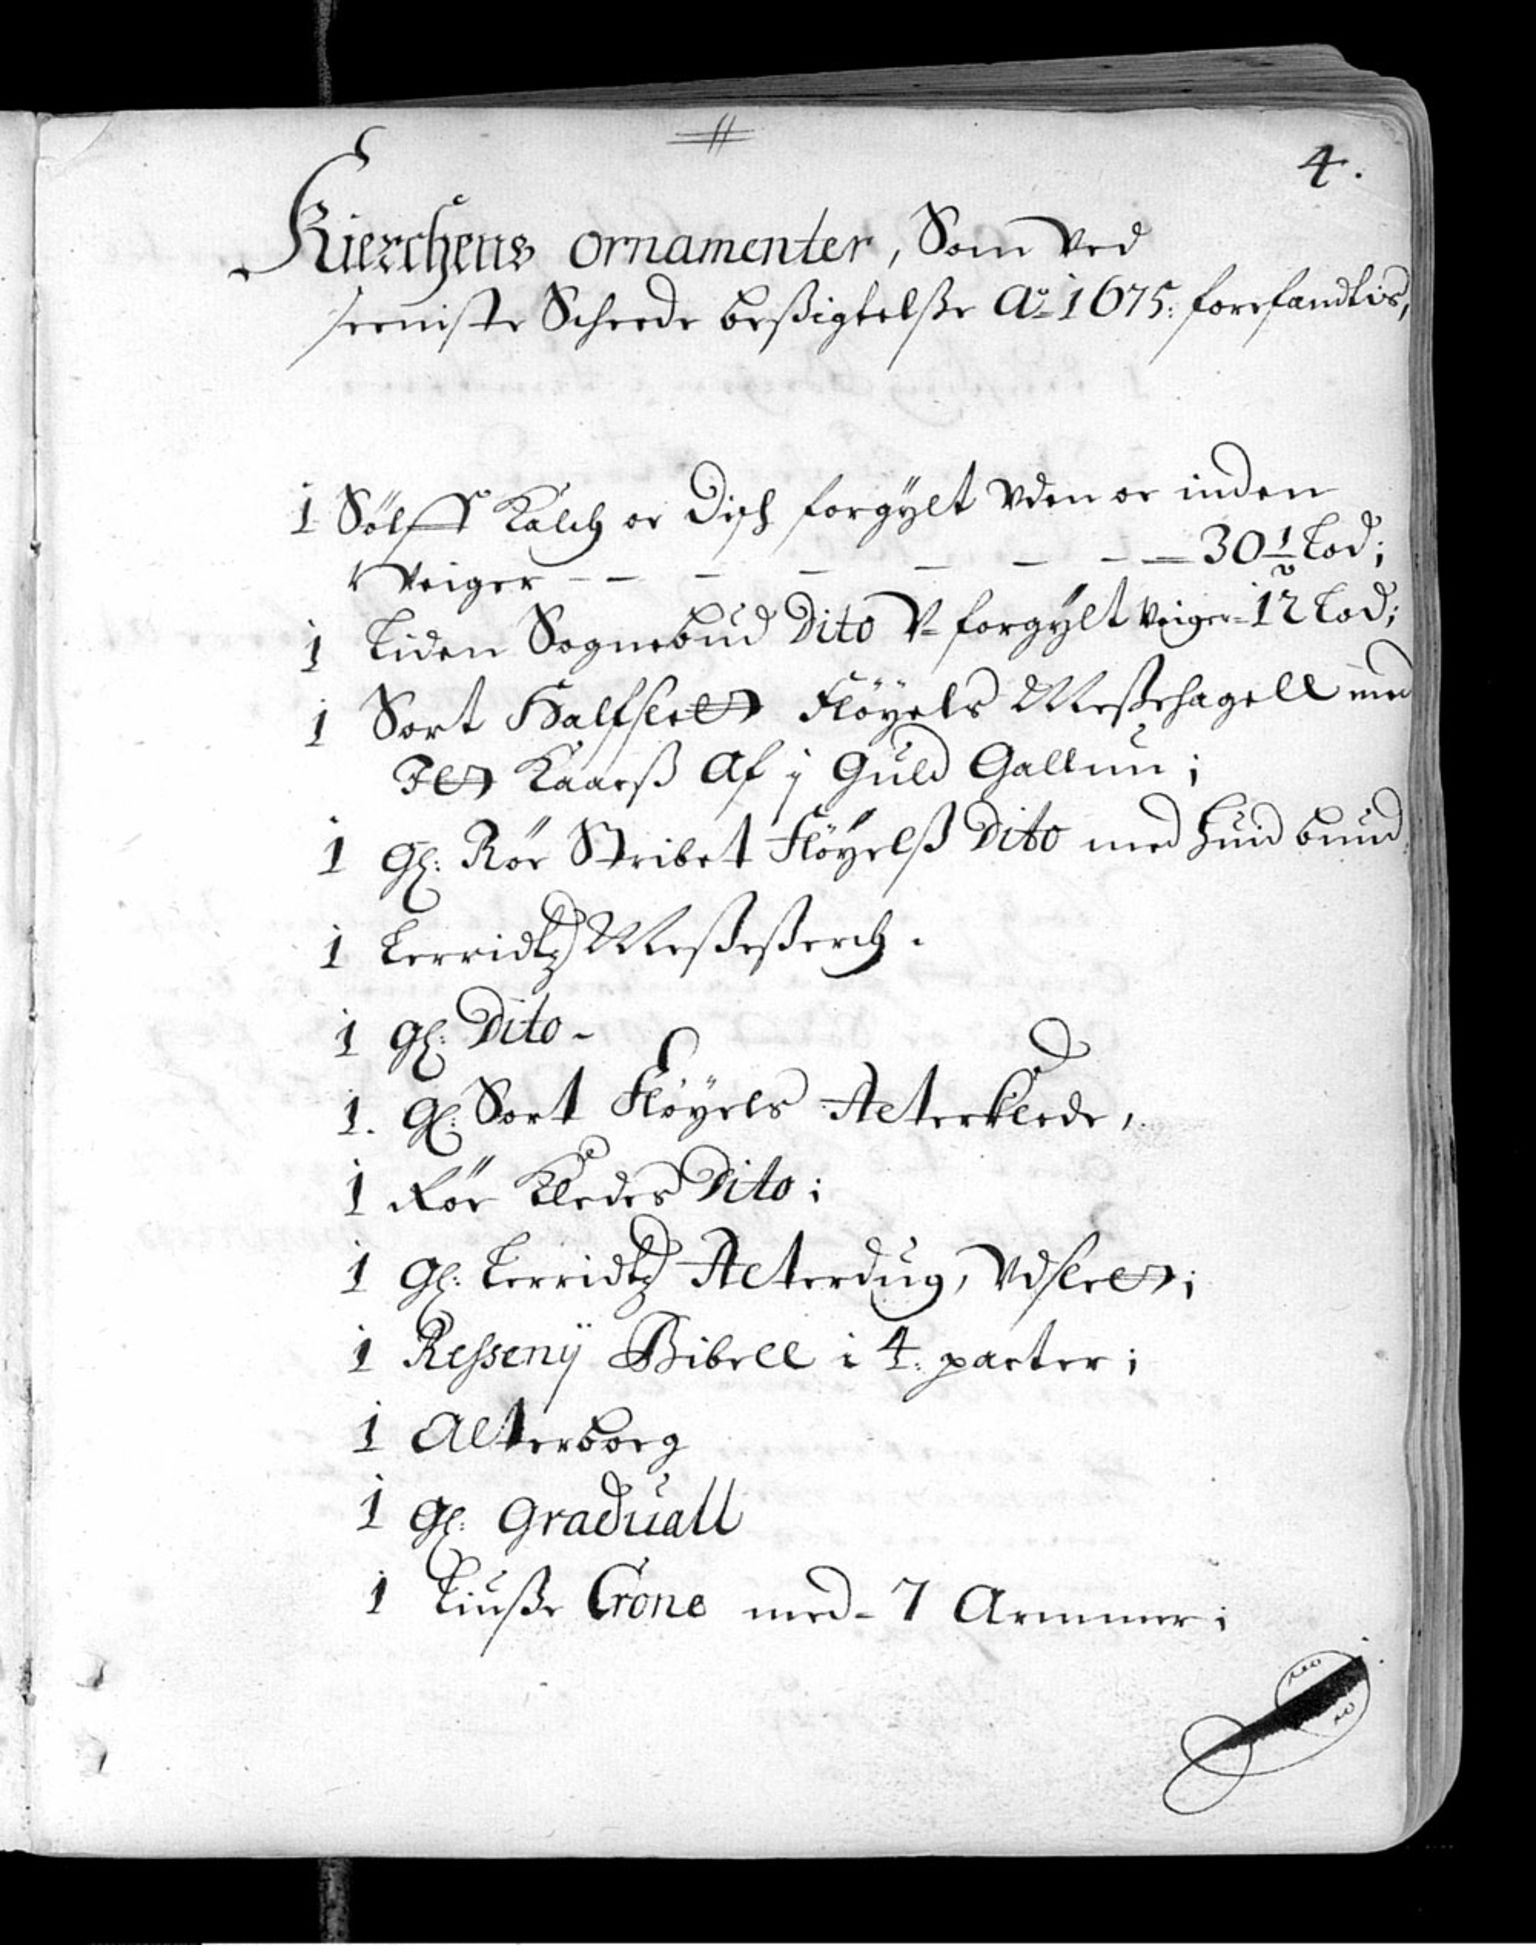 4.
Kierchens ornamenter, Som ved
seeniste Scheede beßigtelße Ao 1675: forefandtis,
1 Sølff Kalch oc Disch forgÿlt Vden oc inden
Veiger - - - - - - - 30 1/2 Lod;
1 Liden Sognebud Dito V- forgÿlt Veiger= 12 Lod;
1 Sort Halfslet Fløyels Meßehagell med
Jt Kaarß Af j Guld Gallun;
1 Gl: Rør Stribet Fløyelß Dito med huid bund
1 Lerridtz Meßeßerch.
1 gl: Dito -
1. Gl: Sort Fløyels Alterklede,
1 Rør Kledes Dito;
1 Gl: Lerridtz Alterdug, Vdslet;
1 Ressenÿ Bibell i 4. parter;
1 Alterboeg
1 Gl: Graduall
1 Liuße Crone med- 7 Armmer;